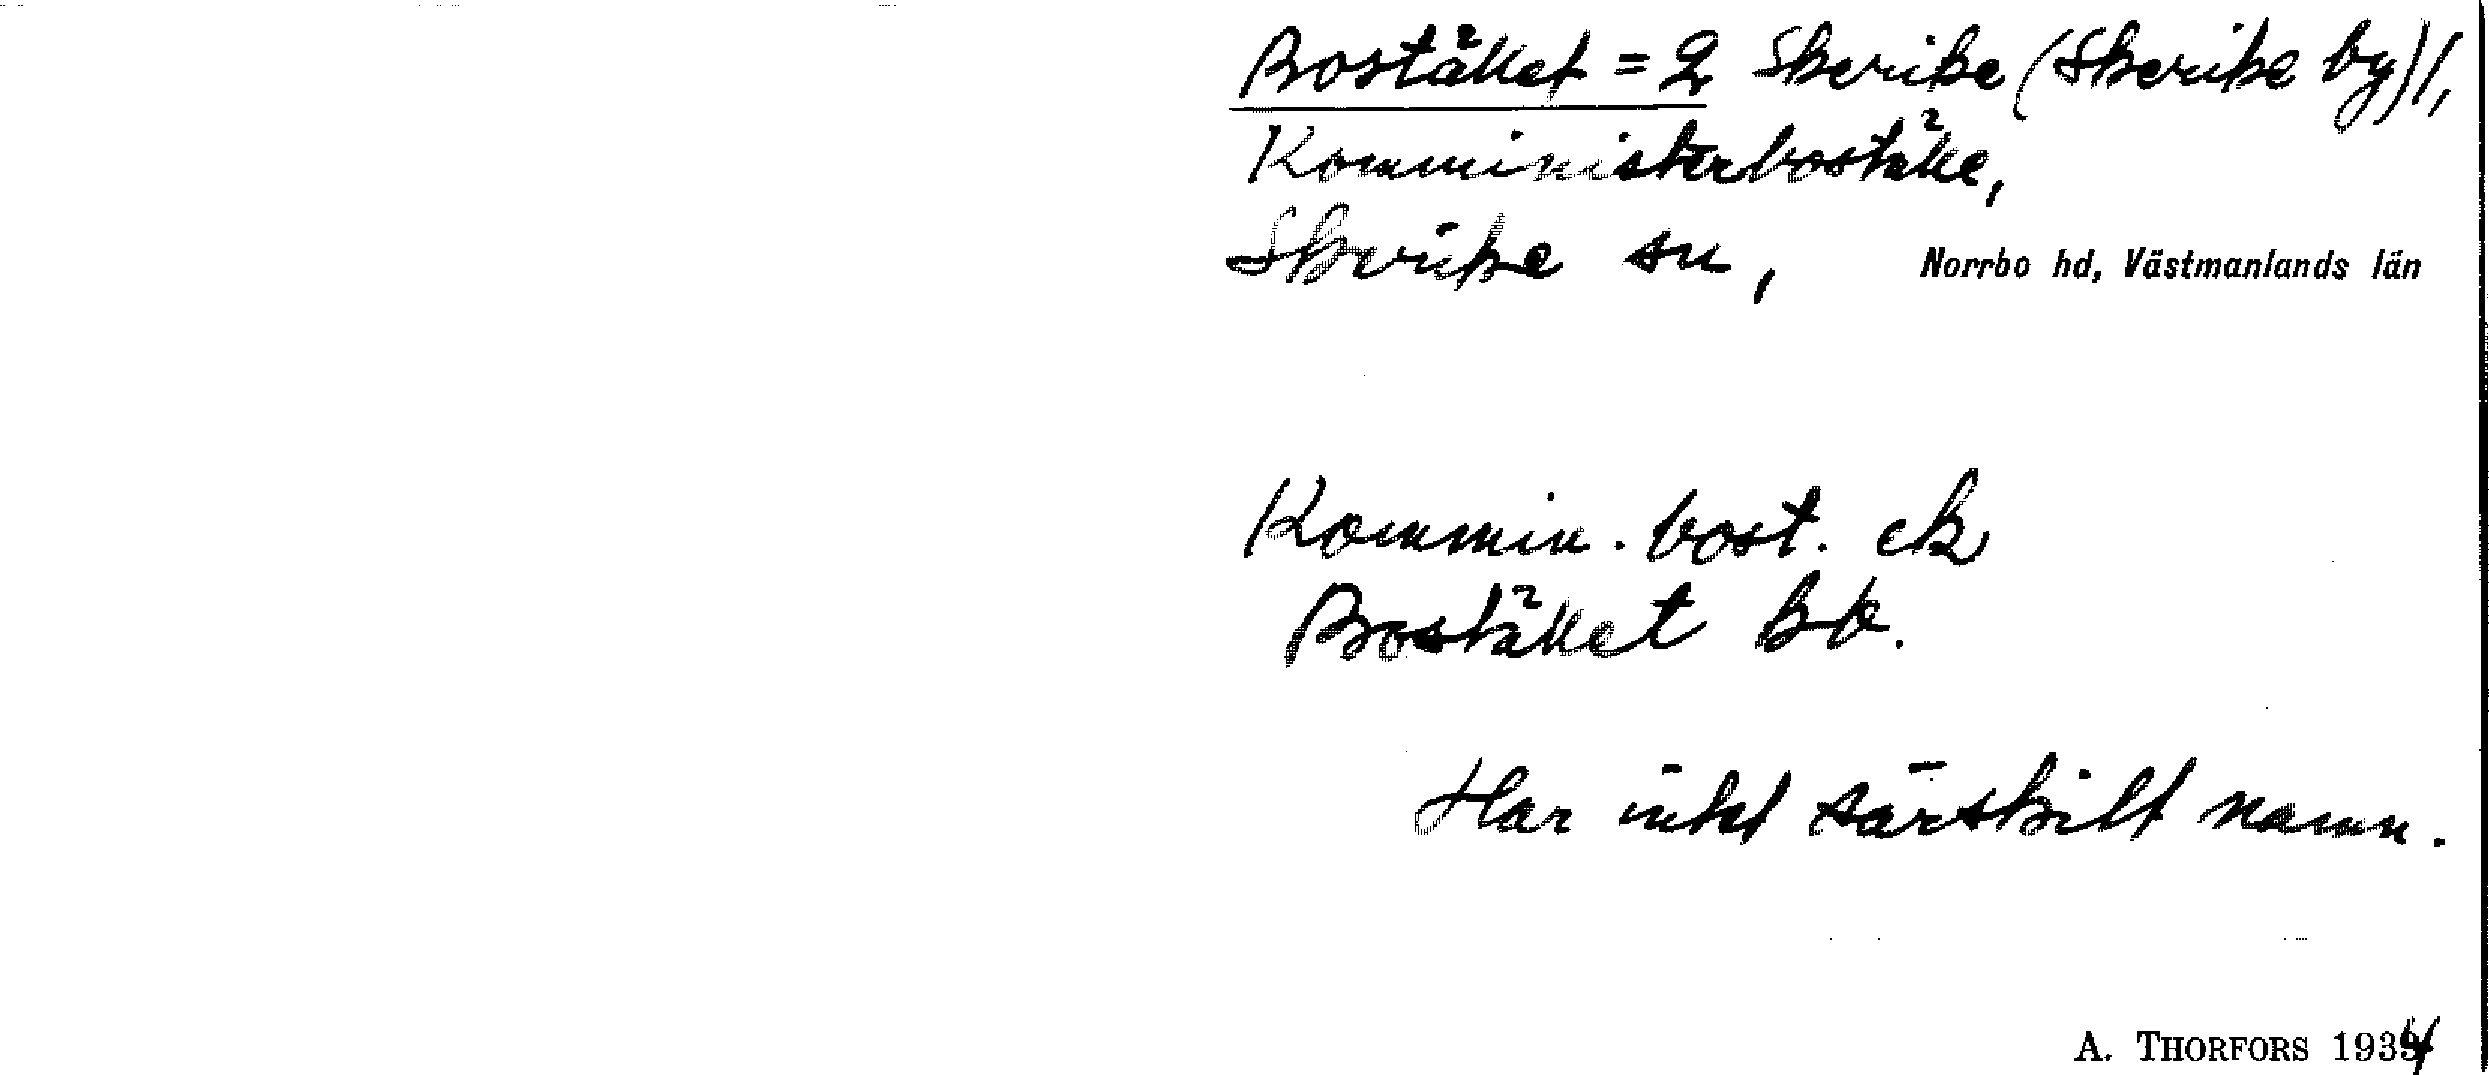 Bostället = 2 Skerike (Skerike by)/,
Komministerboställe,
Skerike sn, Norrbo hd, Västmanlands län
Kommin. bost. ek
Bostället bb.
Har intet särskilt namn.
A. THORFORS 1934